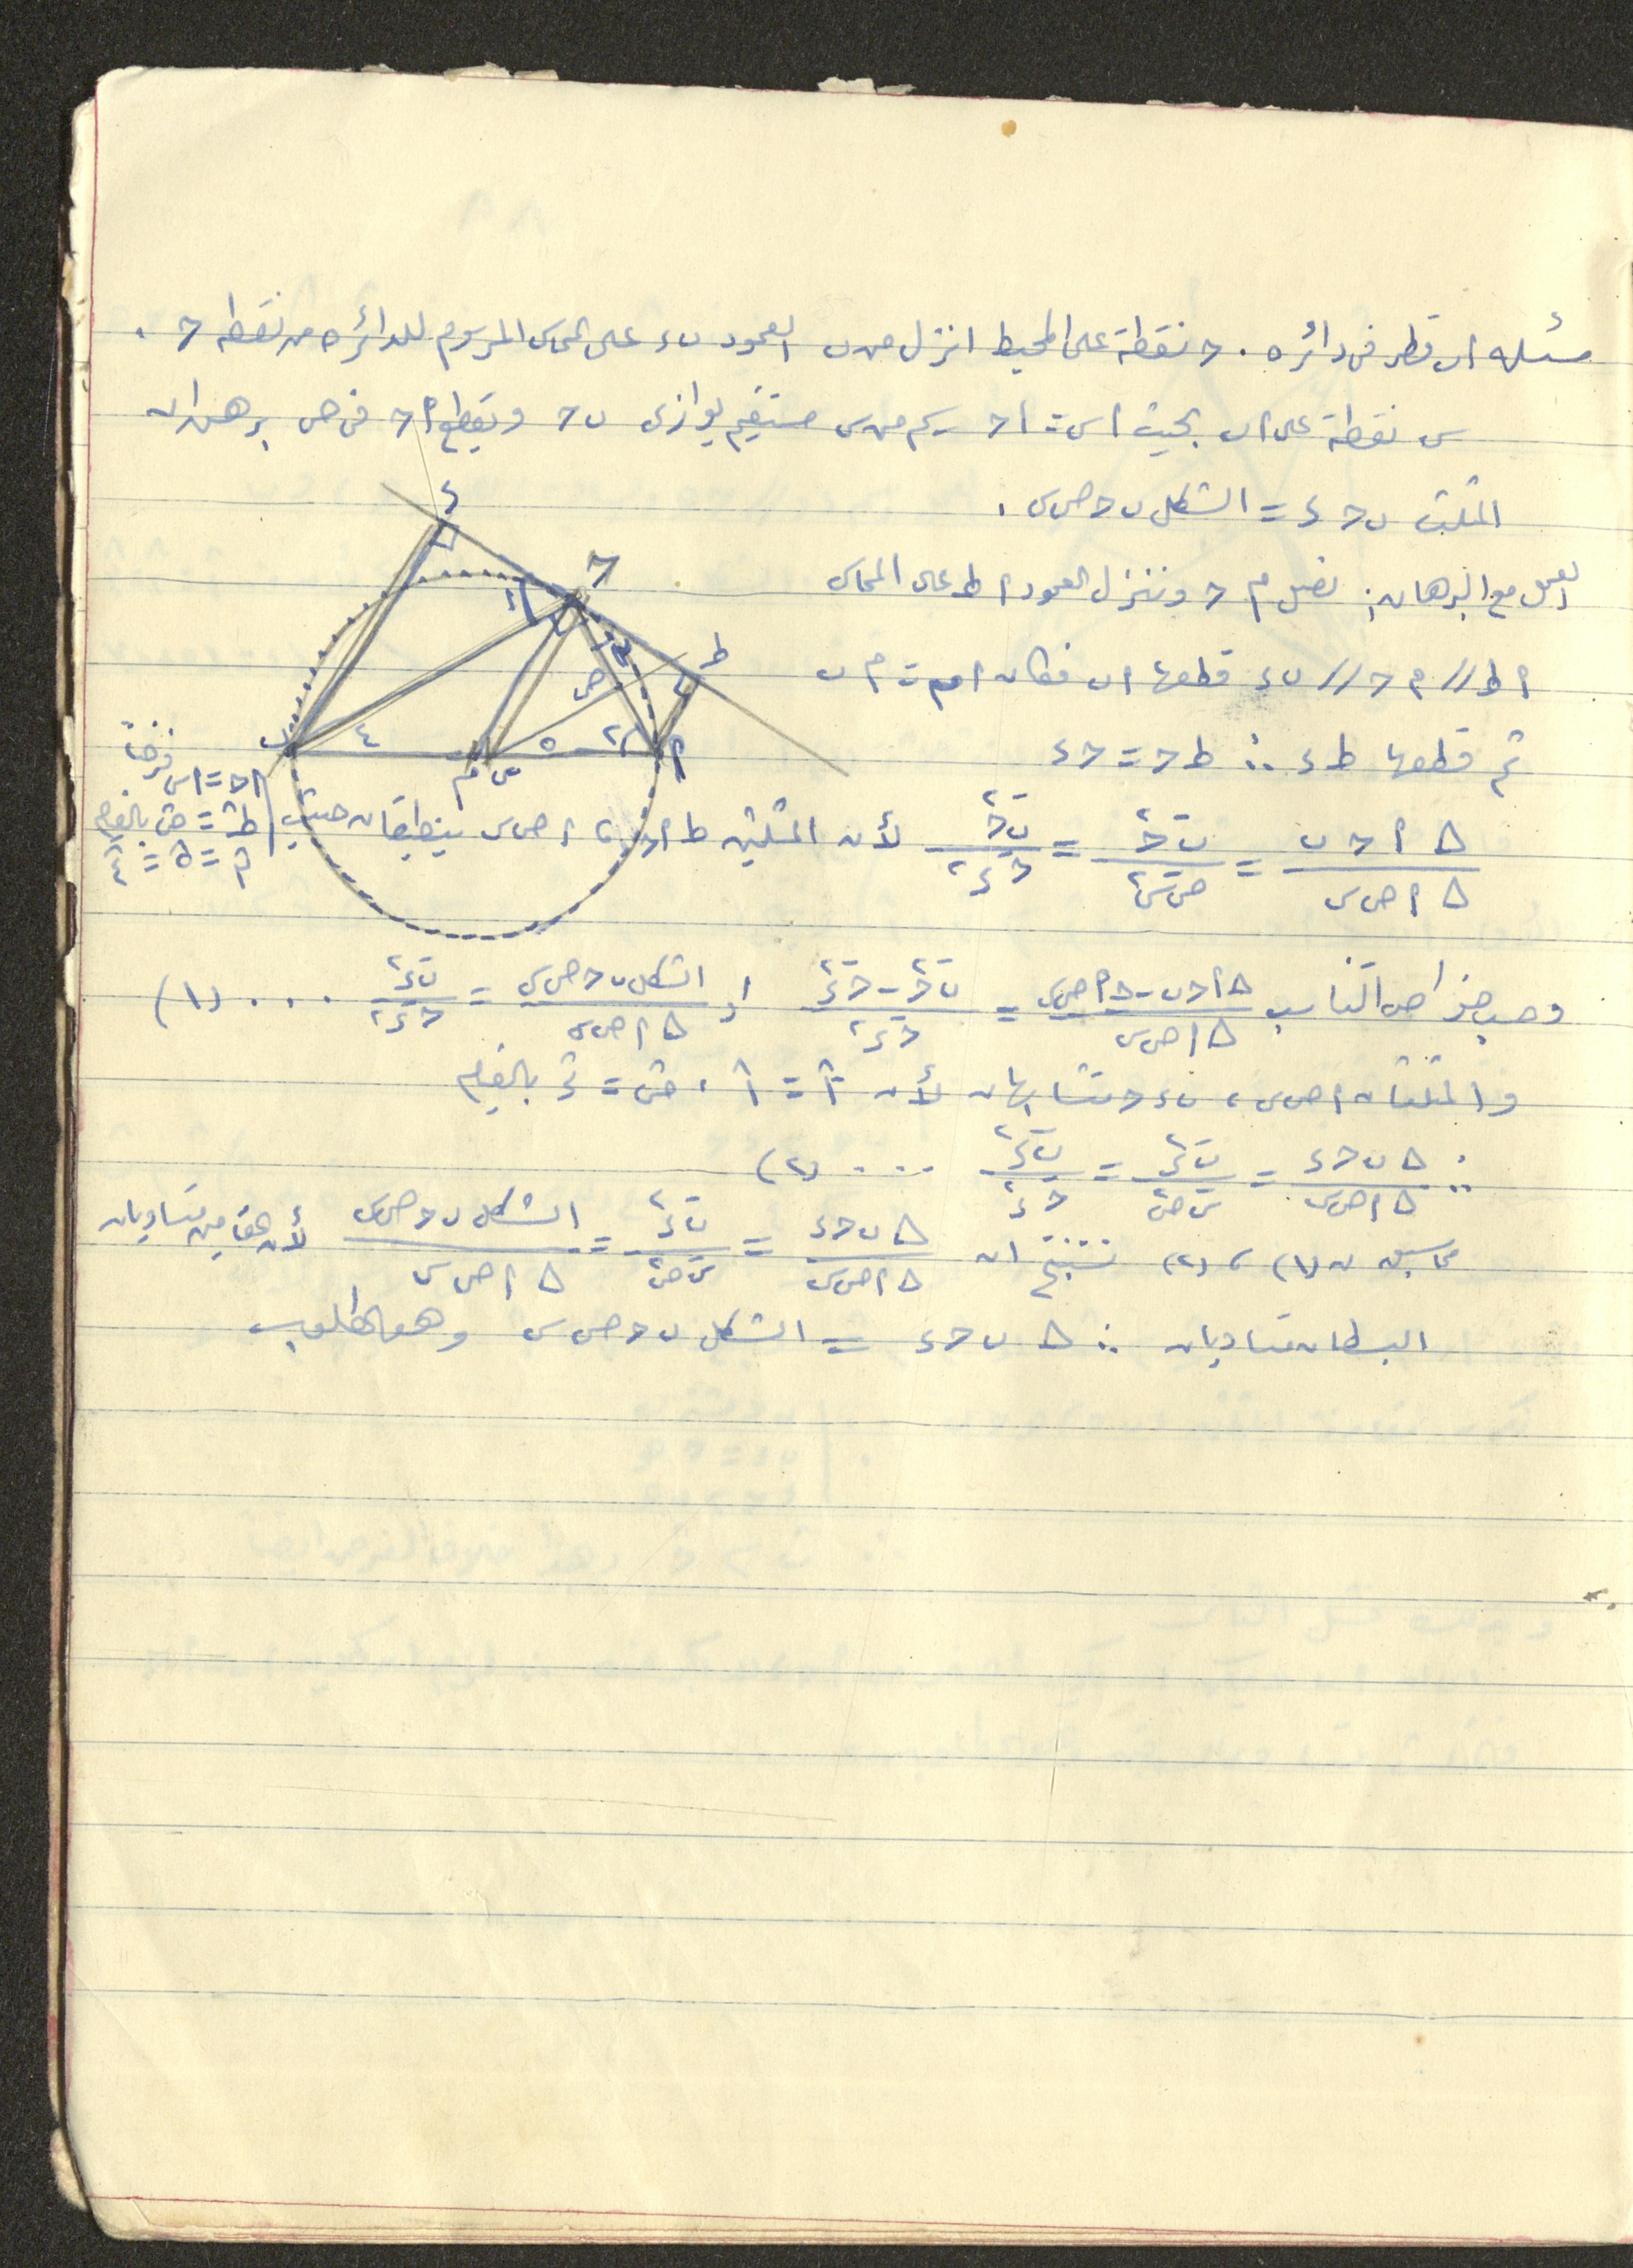 مسئله ا ب قطر فى دائره . ح نقطة على المحيط انزل من ب العمود ب ء على المماس المرسوم للدائره من نقطه ح .
س نقطة على ا ب بحيث ا س = ا ح رسم من س مستقيم يوازى ب ح ويقطع ا ح فى ص برهن ان
المثلث ب ح ء = الشكل ب ح ص س .
العمل مع البرهان : نصل م ح وننزل العمود ا ط على المماس
ا ط // م ح // ب ء قطعها ا ب فكان ا م = م ب
ثم قطعها ط ء ∴ ط ح = ح ء
ء
ح
ط
ص
ا
ب
م س
١
٢
٣
٤
٥
△ ا ح ب / △ ا ص س = ب ح٢ / ص س٢ = ب ح٢ / ح ء٢ لأن المثلثين ط ا ح ، ا ص س ينطبقان حيث
ا ح = ا س فرضاً
ط = ص بالقيام
٣ = ٥ = ٤
وحسب خواص التناسب △ ا ح ب - △ ا ص س / △ ا ص س = ب ح٢ - ح ء٢ / ح ء٢ او الشكل ب ح ص س / △ ا ص س = ب ء٢ / ح ء٢ ... (١)
والمثلثان ا ص س ، ب ء ح متشابهان لأن ٢ = ١ ، ص = ء بالقيام
∴ △ ب ح ء / △ ا ص س = ب ء٢ / س ص٢ = ب ء٢ / ح ء٢ ... (٢)
مما سبق ن (١) ، (٢) نستنتج ان △ ب ح ء / △ ا ص س = ب ء٢ / س ص٢ = الشكل ب ح ص س / △ ا ص س لأن المقامين متساويان
البسطان متساويان ∴ △ ب ح ء = الشكل ب ح ص س وهو المطلوب